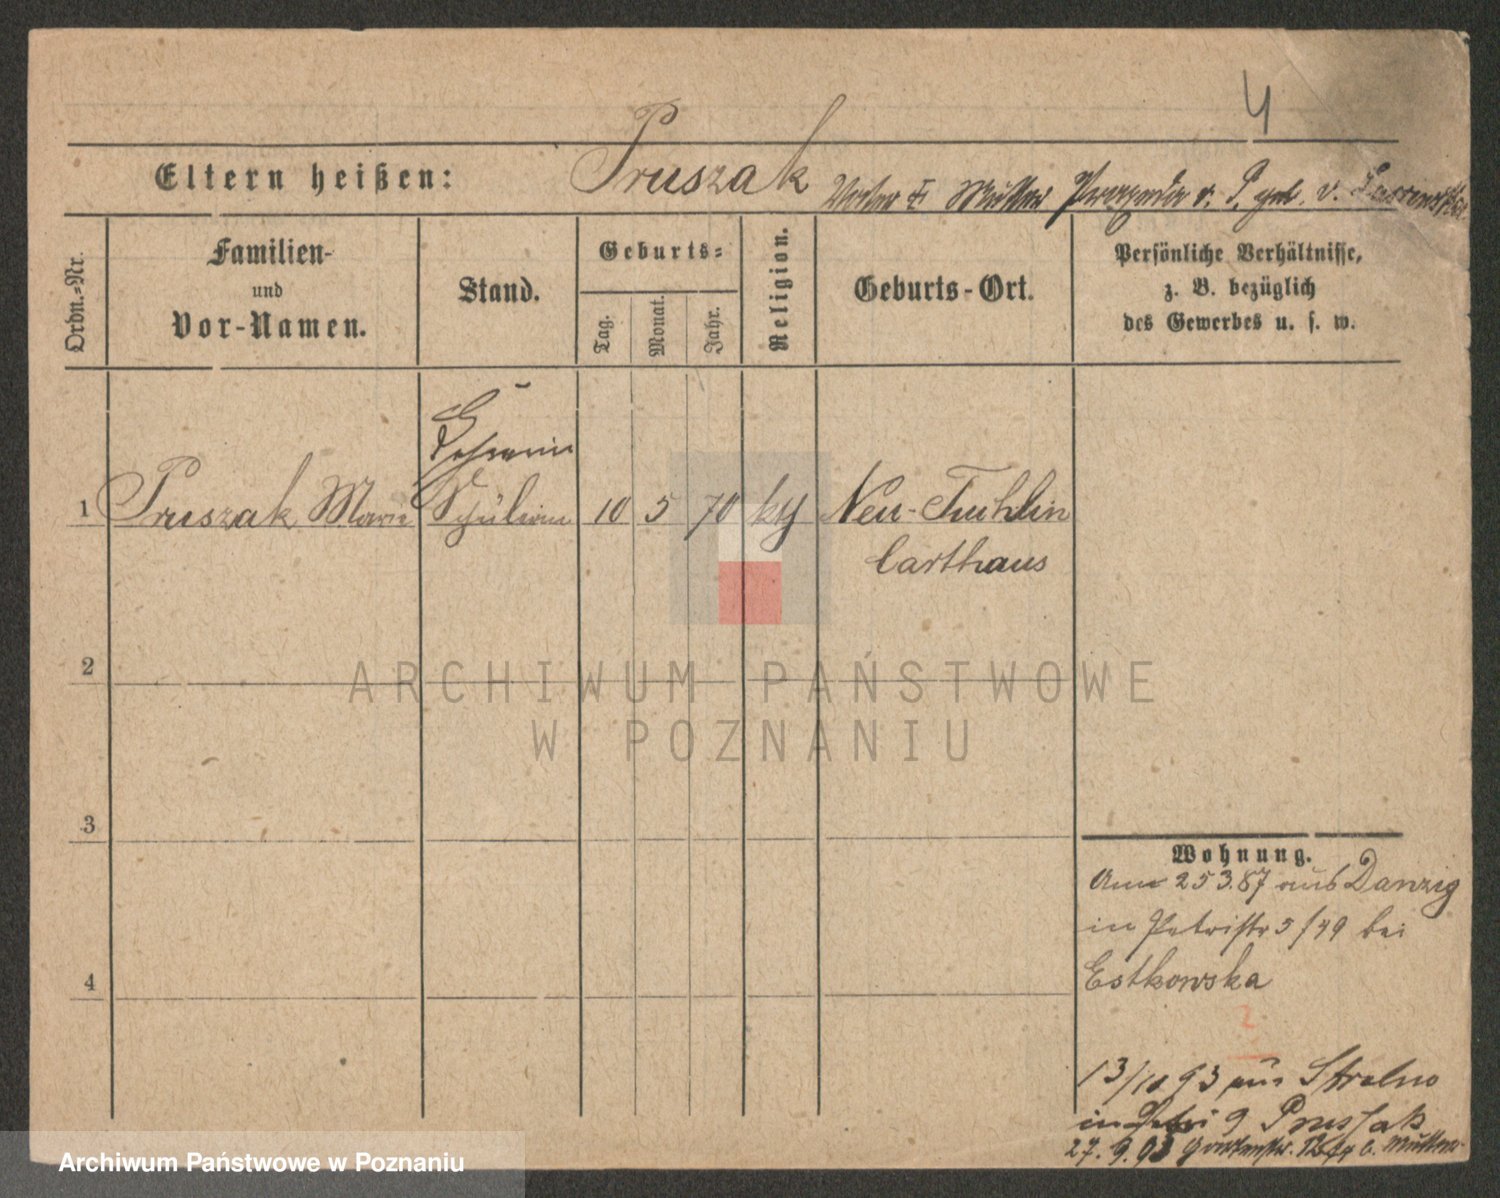 4
Eltern heißen: Pruszak Vater † Mutter v. P. geb. v.
Ordn.-Nr.
Familien-
und
Vor-Namen.
Stand.
Geburts-
Tag.
Monat.
Jahr.
Religion.
Geburts-Ort.
Persönliche Verhältnisse,
z. B. bezüglich
des Gewerbes u. s. w.
1 Pruszak Marie Schülerin 10 5 70 kth Neu-Tuchlin
Carthaus
2
3
4
Wohnung.
Am 25 3.87 aus Danzig
in Petristr 5/49 bei
Estkowska
2
13/10 93 aus Strelno
in Petri 9 Pruszak
27. 9. 93 Gartenstr. b. Mutter
ARCHIWUM PAŃSTWOWE
W POZNANIU
Archiwum Państwowe w Poznaniu